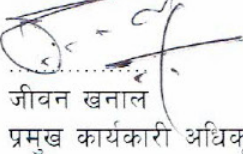 जीवन खनाल
प्रमुख कार्यकारी अधिकृ